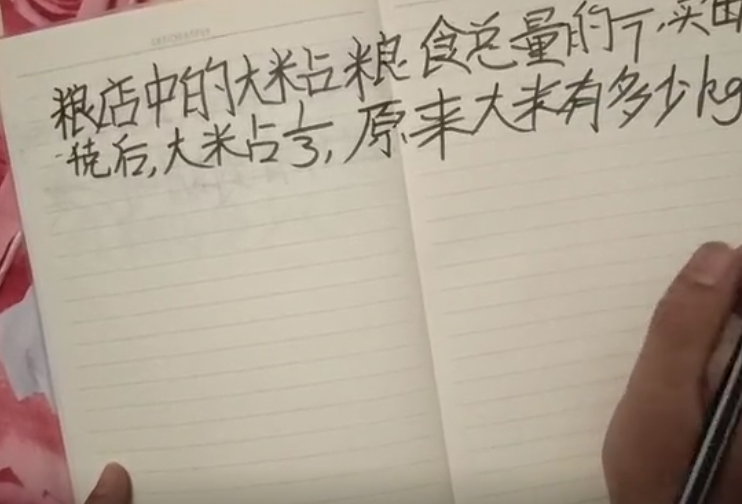 粮店中的大米占粮食总量的
后,大米占1/3,原来大米有多少kg